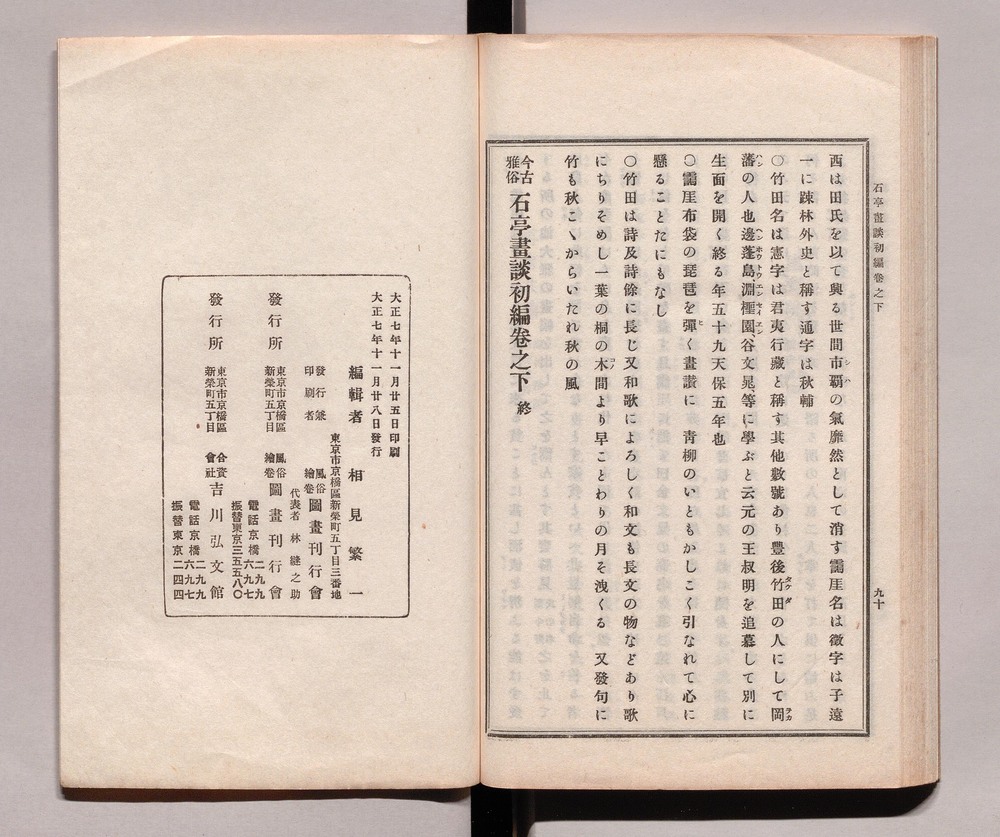 石亭畫談初編卷之下
九十
西は田氏を以て興る世間市覇の氣靡然として消す靄厓名は徵字は子遠
一に疎林外史と稱す通字は秋輔
〇竹田名は憲字は君夷行藏と稱す其他數號あり豐後竹田の人にして岡
藩の人也邊蓬島淵㯃園谷文晁等に學ぶと云元の王叔明を追慕して別に
生面を開く終る年五十九天保五年也
〇靄厓布袋の琵琶を彈く畫讃に 靑柳のいともかしこく引なれて心に
懸ることたにもなし
〇竹田は詩及詩餘に長じ又和歌によろしく和文も長文の物などあり歌
にちりそめし一葉の桐の木間より早ことわりの月そ洩くる 又發句に
竹も秋こゝからいたれ秋の風
今古雅俗 石亭畫談初編卷之下 終
大正七年十一月廿五日印刷
大正七年十一月廿八日發行
編輯者 相見繁一
東京市京橋區新榮町五丁目三番地
發行兼印刷者 風俗繪卷圖畫刊行會
代表者 林縫之助
發行所 東京市京橋區新榮町五丁目 風俗繪卷圖畫刊行會
電話京橋 二九九九 六九七
振替東京三五五八〇
發行所 東京市京橋區新榮町五丁目 合資會社吉川弘文館
電話京橋 二九九九 六九七
振替東京二四四